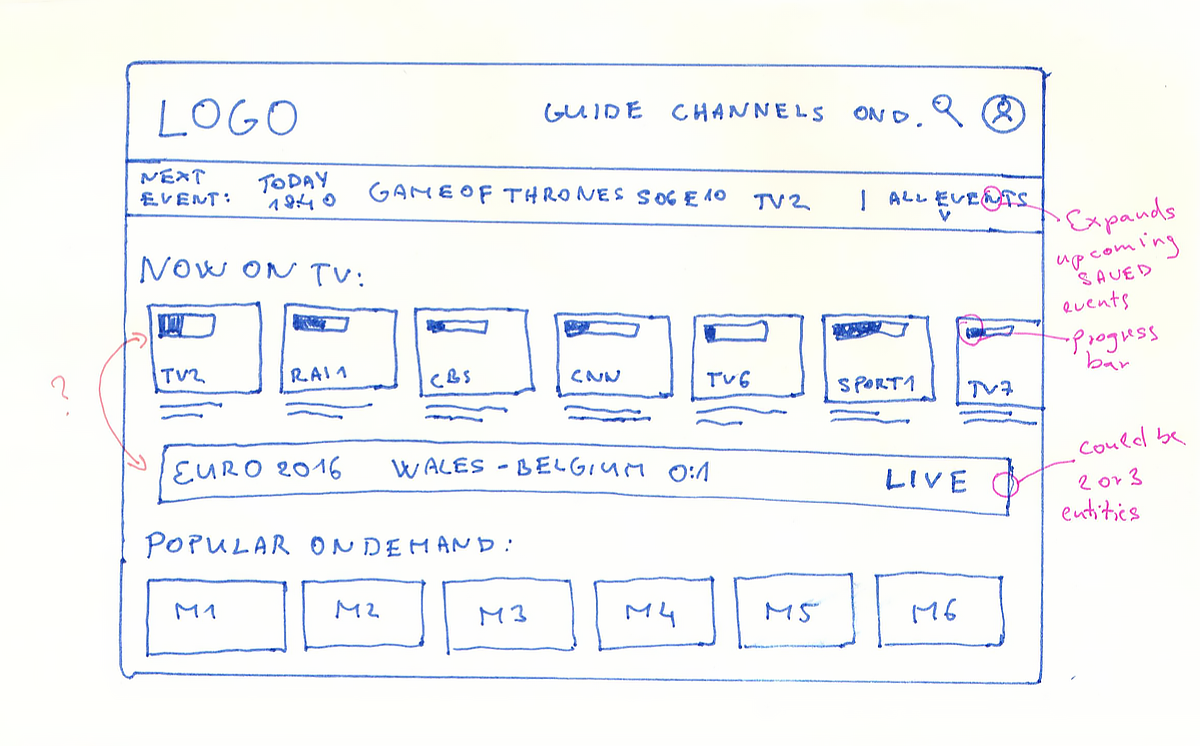 LOGO
GUIDE CHANNELS OND.
NEXT EVENT:
TODAY 18:40
GAME OF THRONES S06E10 TV2 | ALL EVENTS
Expands
upcoming
SAVED
events
NOW ON TV:
TV2 RAI1 CBS CNN TV6 SPORT1 TV7
Progress
bar
?
EURO 2016 WALES - BELGIUM 0:1 LIVE
could be
2 or 3
entities
POPULAR ONDEMAND:
M1 M2 M3 M4 M5 M6